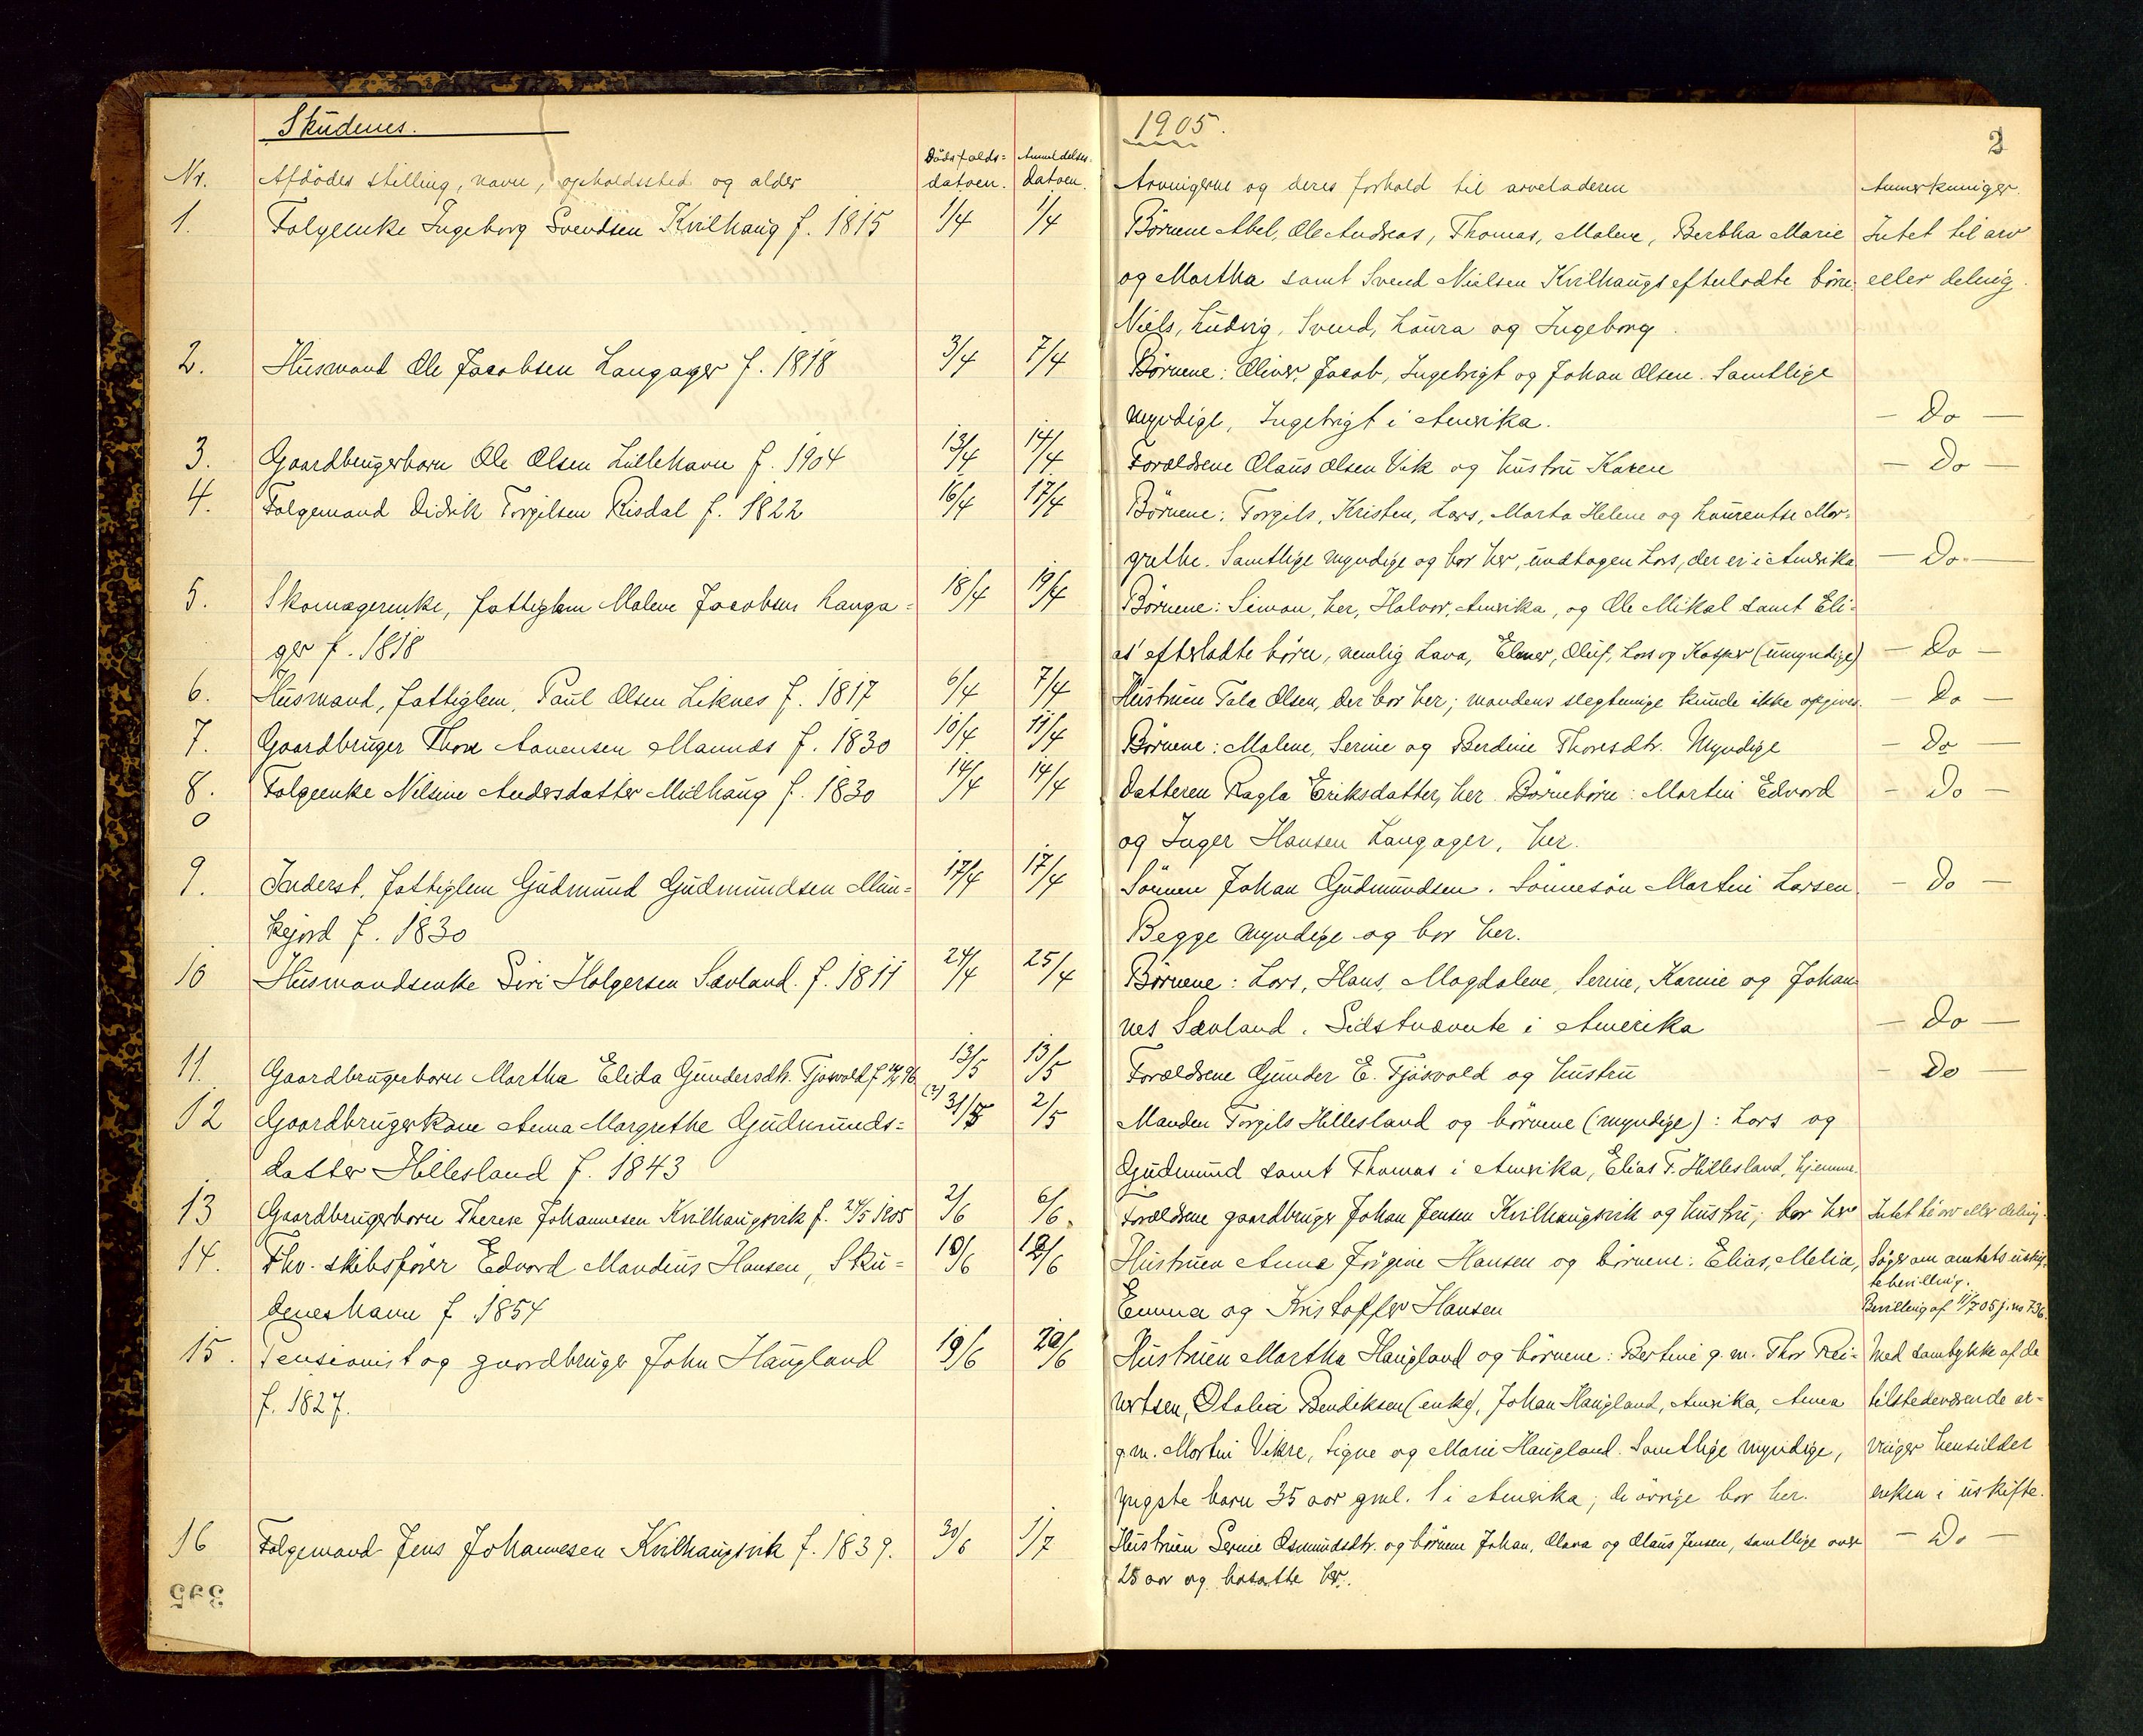 Skudenes.
1905.
2
Nr.
Afdödes stilling, navn, opholdssted og alder
Dödsfalds=
datoen.
Anmeldelses-
datoen.
Arvingerne og deres forhold til arveladeren
Anmerkninger.
1. Folgeenke Ingeborg Svendsen Kvilhaug f. 1815 1/4 1/4 Börnene Abel, Ole Andreas, Thomas, Malene, Bertha Marie Intet til arv
og Martha samt Svend Nielsen Kvilhaugs efterladte börn: eller deling.
Niels, Ludvig, Svend, Laura og Ingeborg.
2. Husmand Ole Jacobsen Langager f. 1818 3/4 7/4 Börnene: Oliver, Jacob, Ingebrigt og Johan Olsen. Samtlige
myndige, Ingebrigt i Amerika. - Do -
3. Gaardbrugerbarn Ole Olsen Lillehavn f. 1904 13/4 14/4 Forældrene Olaus Olsen Vik og hustru Karen - Do -
4. Folgemand Didrik Torgilsen Risdal f. 1822 16/4 17/4 Börnene: Torgils, Kristen, Lars, Marta Helene og Laurentse Mar-
grethe. Samtlige myndige og bor her, undtagen Lars, der er i Amerika - Do. -
5. Skomagerenke, fattiglem Malene Jacobsen Langa= 18/4 19/4 Börnene: Simon, her, Halvor, Amerika, og Ole Mikal samt Eli-
ger f. 1818 as' efterladte börn, nemlig Lava, Elmer, Oluf, Lars og Kasper (umyndige) - Do -
6. Husmand, fattiglem, Paul Olsen Liknes f. 1817 6/4 7/4 Hustruen Tala Olsen, der bor her; mandens slegtninge kunde ikke opgives. - Do -
7. Gaardbruger Thore Aanensen Mannes f. 1830 10/4 11/4 Börnene: Malene, Serine og Berdine Thoresdtr. Myndige - Do -
8. Folgeenke Nilsine Andersdatter Midhaug f. 1830 14/4 14/4 Datteren Ragla Eriksdatter, her. Börnebörn: Martin Edvard - Do -
0 og Inger Hansen Langager, her.
9. Inderst, fattiglem Gudmund Gudmundsen Mun= 17/4 17/4 Sönnen Johan Gudmundsen. Sönnesön Martin Larsen. - Do -
kejord f. 1830 Begge myndige og bor her.
10 Husmandsenke Siri Holgersen Sævland. f. 1811 24/4 25/4 Börnene: Lars, Hans, Magdalene, Serine, Karine og Johan-
nes Sævland. Sidstnævnte i Amerika - Do -
11. Gaardbrugerbarn Martha Elida Gundersdtr. Tjösvold f. 96 13/5 13/5 Forældrene Gunder E. Tjösvold og hustru - Do -
12 Gaardbrugerkone Anna Margrethe Gudmunds= (?) 31/5 2/5 Manden Torgils Hillesland og börnene (myndige): Lars og
datter Hillesland f. 1843 Gudmund samt Thomas i Amerika, Elias T. Hillesland, hjemme.
13 Gaardbrugerbarn Therese Johannesen Kvilhaugsvik f. 24/5 1905 2/6 6/6. Forældrene gaardbruger Johan Jensen Kvilhaugsvik og hustru; bor her Intet til arv eller deling.
14. Fhv. skibsförer Edvard Mandius Hansen, Sku= 10/6 12/6 Hustruen Anna Jörgine Hansen og börnene: Elias, Melia, Söger om amtets uskif-
tebevilling.
deneshavn f. 1854 Emma og Kristoffer Hansen Bevilling af 11/7 05 j. no 736.
15. Pensionist og gaardbruger John Haugland 19/6 20/6 Hustruen Martha Haugland og börnene: Bertine g. m. Thor Rei- Med samtykke af de
f. 1827. nertsen, Otalia Bendiksen (enke), Johan Haugland, Amerika, Anna tilstedeværende ar-
g. m. Martin Vikre, Signe og Marie Haugland. Samtlige myndige, vinger hensidder
yngste barn 35 aar gml. 1 i Amerika; de övrige bor her. enken i uskifte.
16 Folgemand Jens Johannesen Kvilhaugsvik f. 1839. 30/6 1/7 Hustruen Serine Osmundsdtr. og börnene Johan, Olava og Olaus Jensen, samtlige over - Do -
25 aar og bosatte her.
395